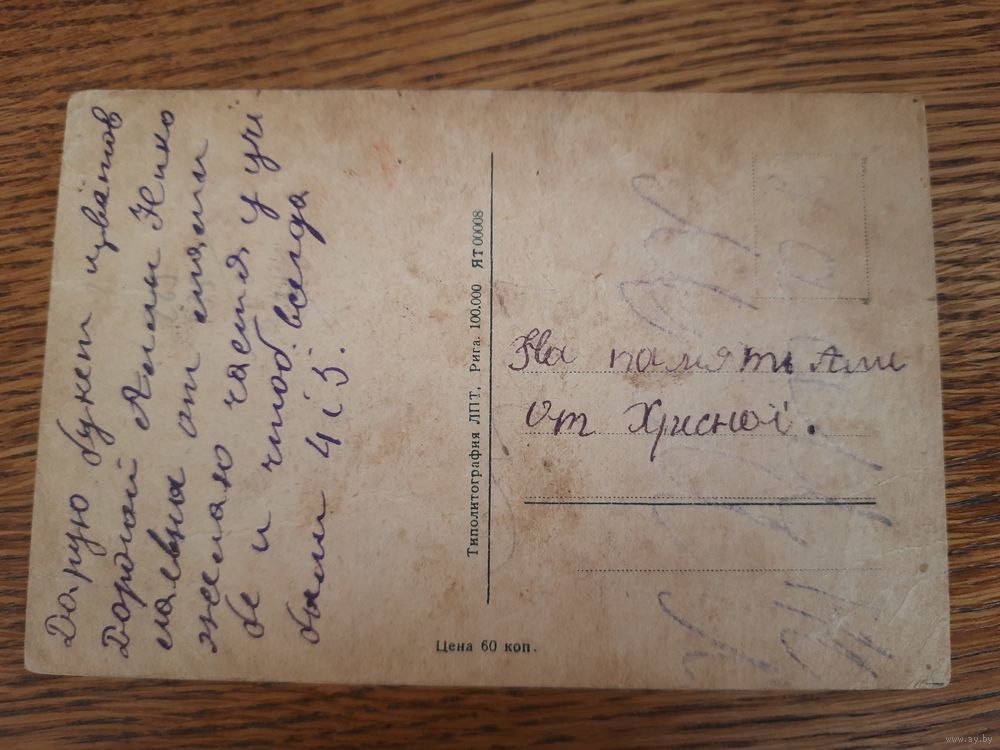 Дарую букет цватов
Дорогой Анны Нико
лавны от
желаю частя у учі
бе и чтоб всегда
были 4 і 5.
Типолитография ЛПТ, Рига. 100.000 ЯТ 00008
Цена 60 коп.
На память Ани
От Хрисной.
www.ay.by